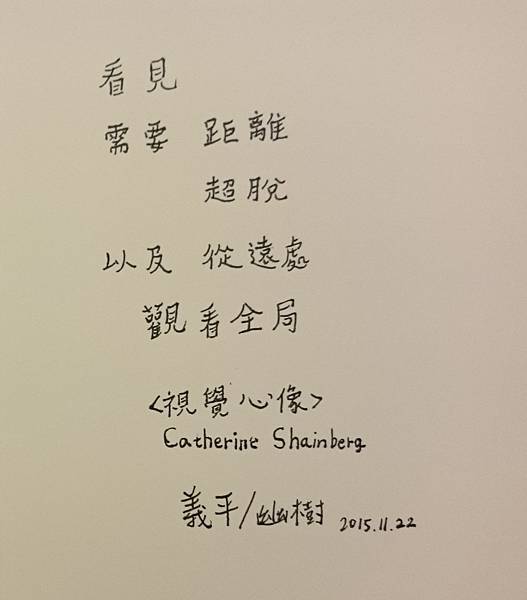 看見
需要 距離
超脫
以及 從遠處
觀看全局
<視覺心像>
Catherine Shainberg
義平/幽樹 2015.11.22